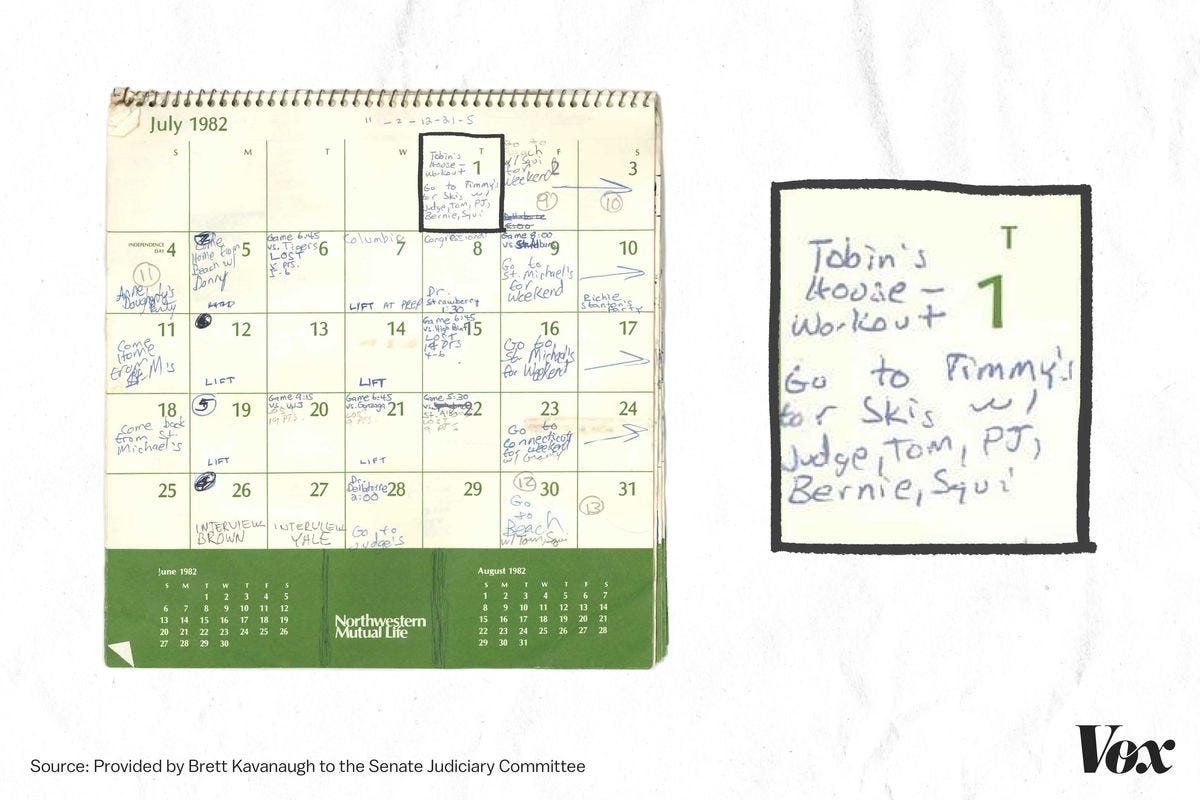 July 1982
S M T W T F S
Tobin's
House –
Workout
1
Go to Timmy's
for Skis w/
Judge, Tom, PJ,
Bernie, Squi
Go to
Beach
w/ Squi
for
Weekend
2
9
3
10
INDEPENDENCE
DAY
4
11
Anne
Daugherty's
Party
5
Come
Home from
Beach w/
Donny
6
Game 6:45
vs. Tigers
LOST
5-6
7
Columbia
LIFT AT PREP
8
Congressional
Dr.
Strawberry
1:30
9
Game 8:00
vs.
Go to
St. Michael's
for
Weekend
10
Richie
Stanton's
Party
11
Come
Home
from
St. M's
12
LIFT
13
14
LIFT
15
Game 6:45
LOST
4-6
16
Go to
St. Michael's
for Weekend
17
18
Come back
from St.
Michael's
19
LIFT
20
Game 9:15
vs. WJ
19 PTS.
21
Game 6:45
vs. Gonzaga
LIFT
22
Game 5:30
vs.
LOST
9 PTS
23
Go to
Connecticut
for weekend
24
25
26
INTERVIEW
BROWN
27
INTERVIEW
YALE
28
Dr.
2:00
Go to
Judge's
29
30
12
Go
to
Beach
w/ Tom, Squi
31
13
June 1982
S M T W T F S
1 2 3 4 5
6 7 8 9 10 11 12
13 14 15 16 17 18 19
20 21 22 23 24 25 26
27 28 29 30
Northwestern
Mutual Life
August 1982
S M T W T F S
1 2 3 4 5 6 7
8 9 10 11 12 13 14
15 16 17 18 19 20 21
22 23 24 25 26 27 28
29 30 31
T
1
Tobin's
House –
Workout
Go to Timmy's
for Skis w/
Judge, Tom, PJ,
Bernie, Squi
Source: Provided by Brett Kavanaugh to the Senate Judiciary Committee
Vox